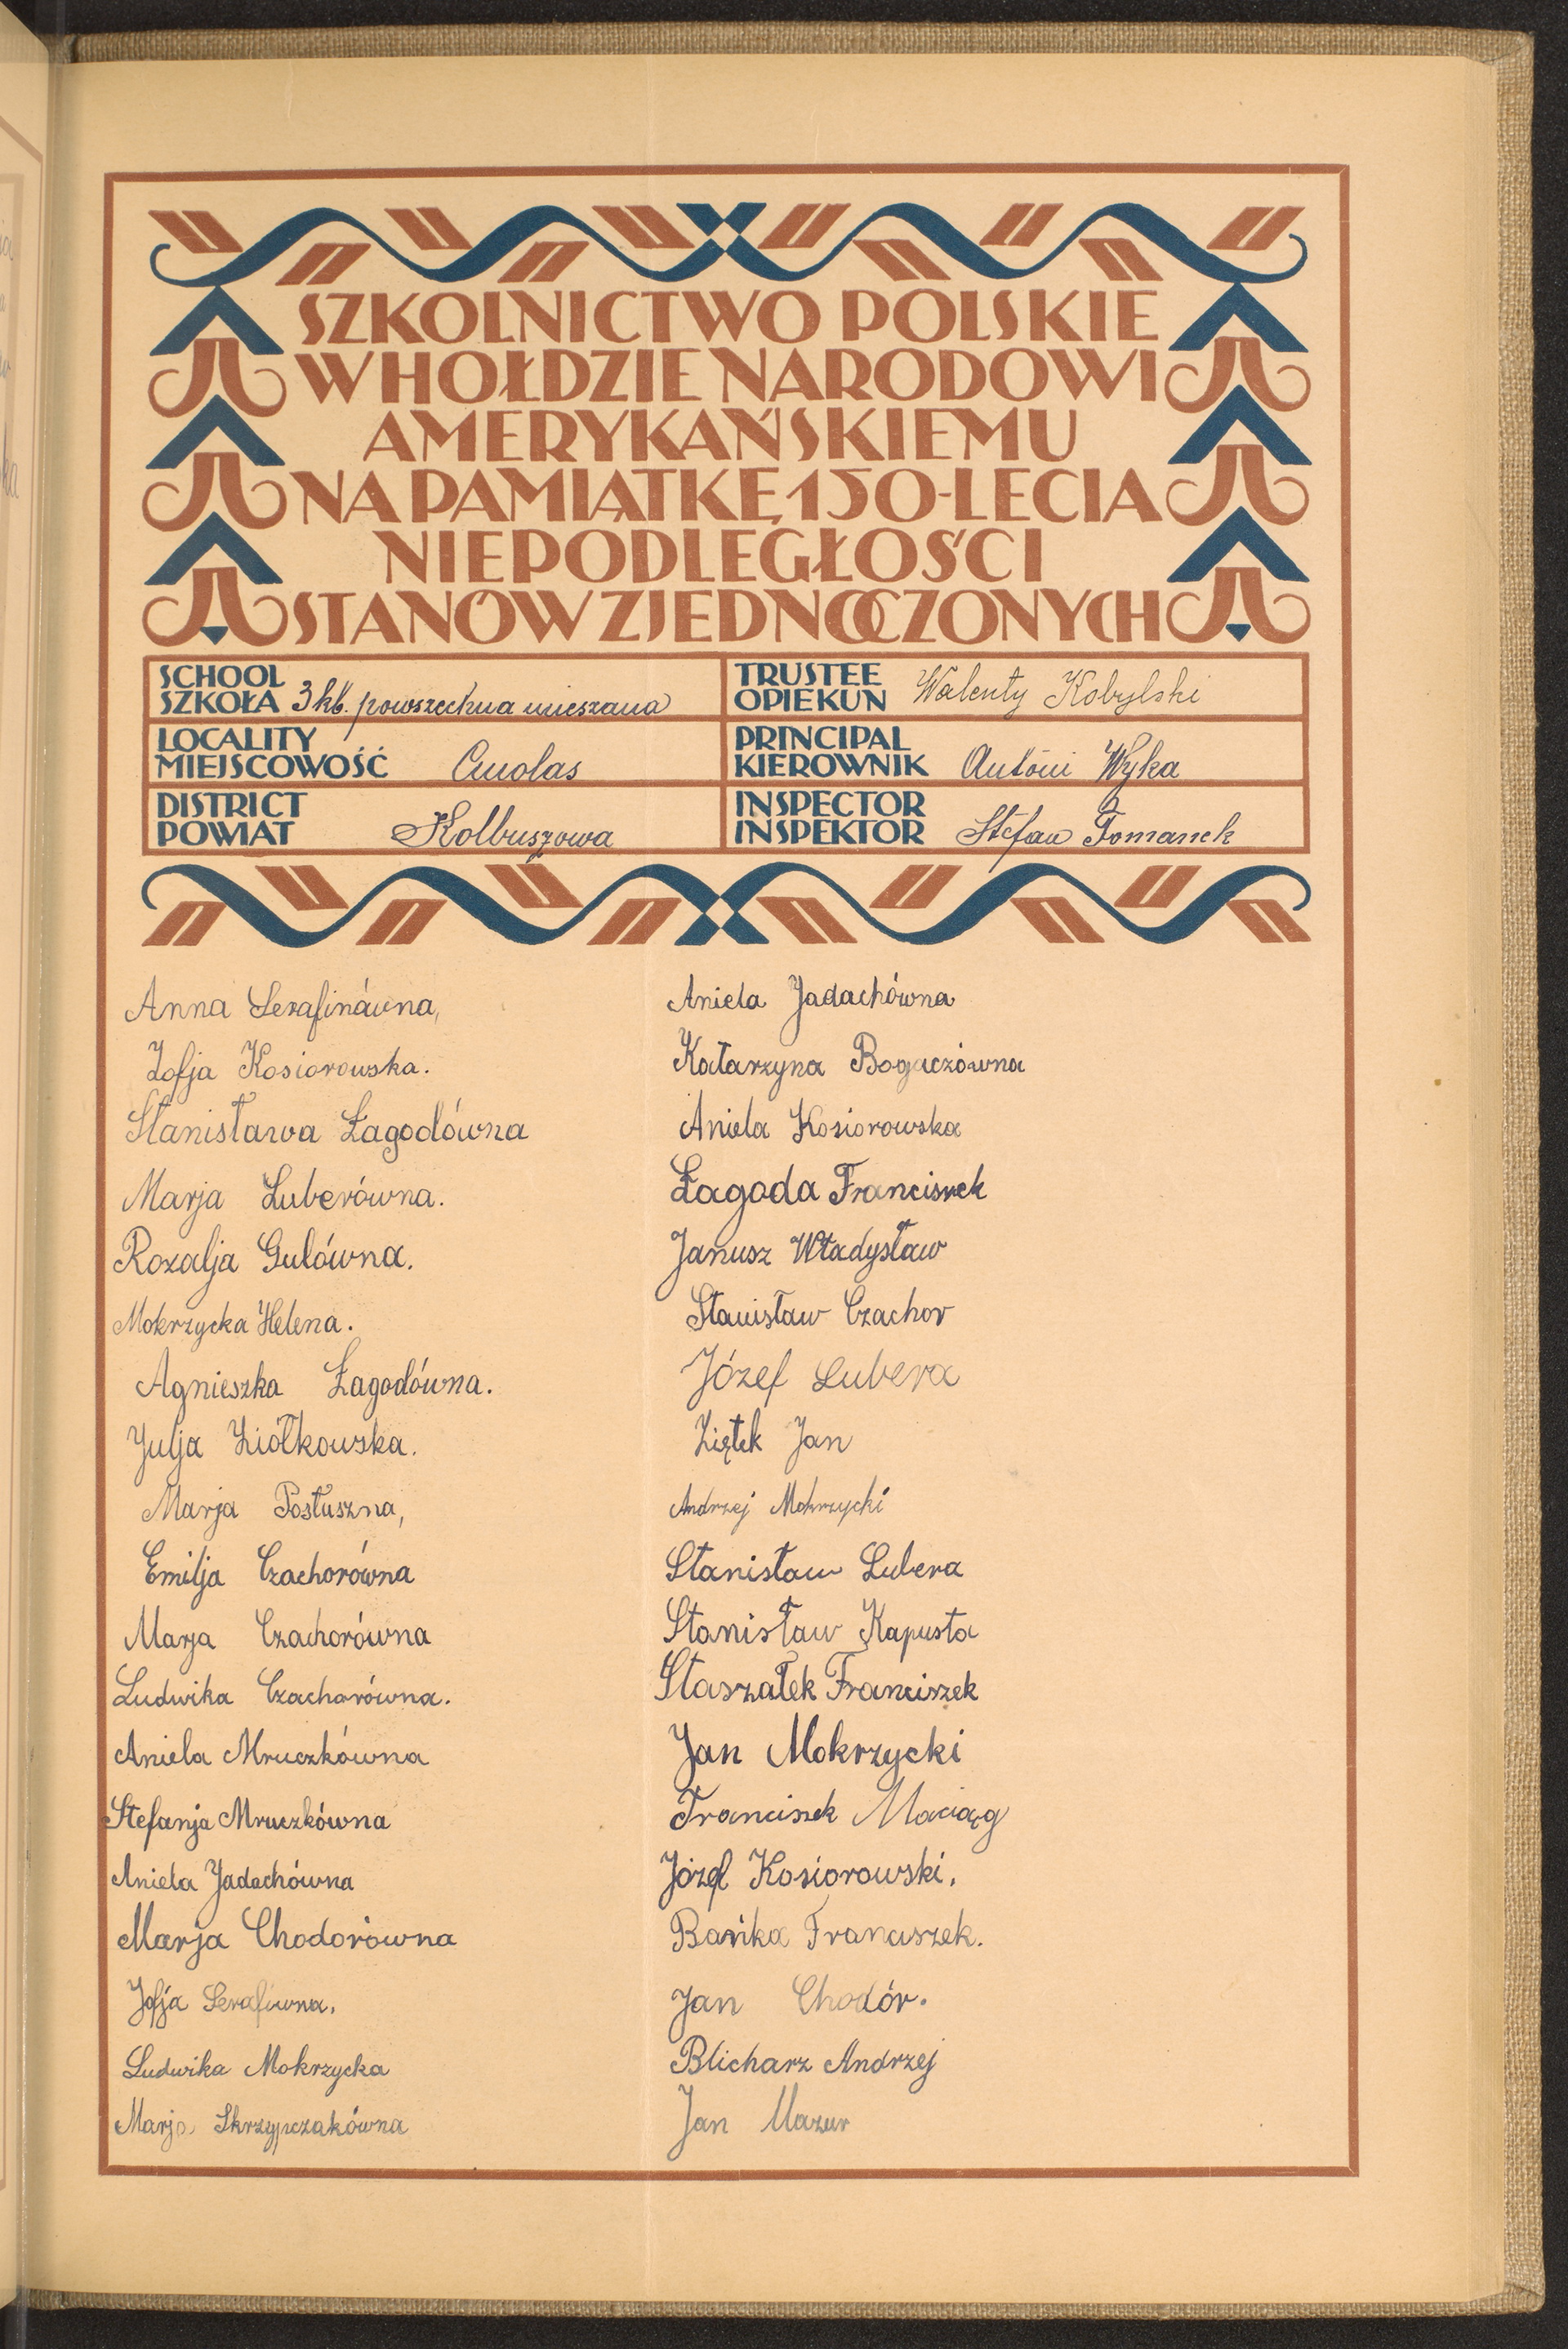 SZKOLNICTWO POLSKIE
W HOŁDZIE NARODOWI
AMERYKAŃSKIEMU
NA PAMIĄTKĘ 150-LECIA
NIEPODLEGŁOŚCI
STANÓW ZJEDNOCZONYCH
SCHOOL
SZKOŁA 3 kl. powszechna mieszana
TRUSTEE
OPIEKUN Walenty Kobylski
LOCALITY
MIEJSCOWOŚĆ Cmolas
PRINCIPAL
KIEROWNIK Antóni Wyka
DISTRICT
POWIAT Kolbuszowa
INSPECTOR
INSPEKTOR Stefan Tomanek
Anna Serafinówna,
Zofja Kosiorowska.
Stanisława Łagodówna
Marja Luberówna.
Rozalja Gulówna.
Mokrzycka Helena.
Agnieszka Łagodówna.
Julja Ziółkowska.
Marja Posłuszna,
Emilja Czachorówna
Marja Czachorówna
Ludwika Czachorówna.
Aniela Mruczkówna
Stefanja Mruczkówna
Aniela Jadachówna
Marja Chodorówna
Zofja Serafiwna.
Ludwika Mokrzycka
Marja Skrzypczakówna
Aniela Jadachówna
Katarzyna Bogaczówna
Aniela Kosiorowska
Łagoda Franciszek
Janusz Władysław
Stanisław Czachor
Józef Lubera
Ziętek Jan
Andrzej Mokrzycki
Stanisław Lubera
Stanisław Kapusta
Staszałek Franciszek
Jan Mokrzycki
Franciszek Maciąg
Józef Kosiorowski.
Bańka Franciszek.
Jan Chodór.
Blicharz Andrzej
Jan Mazur